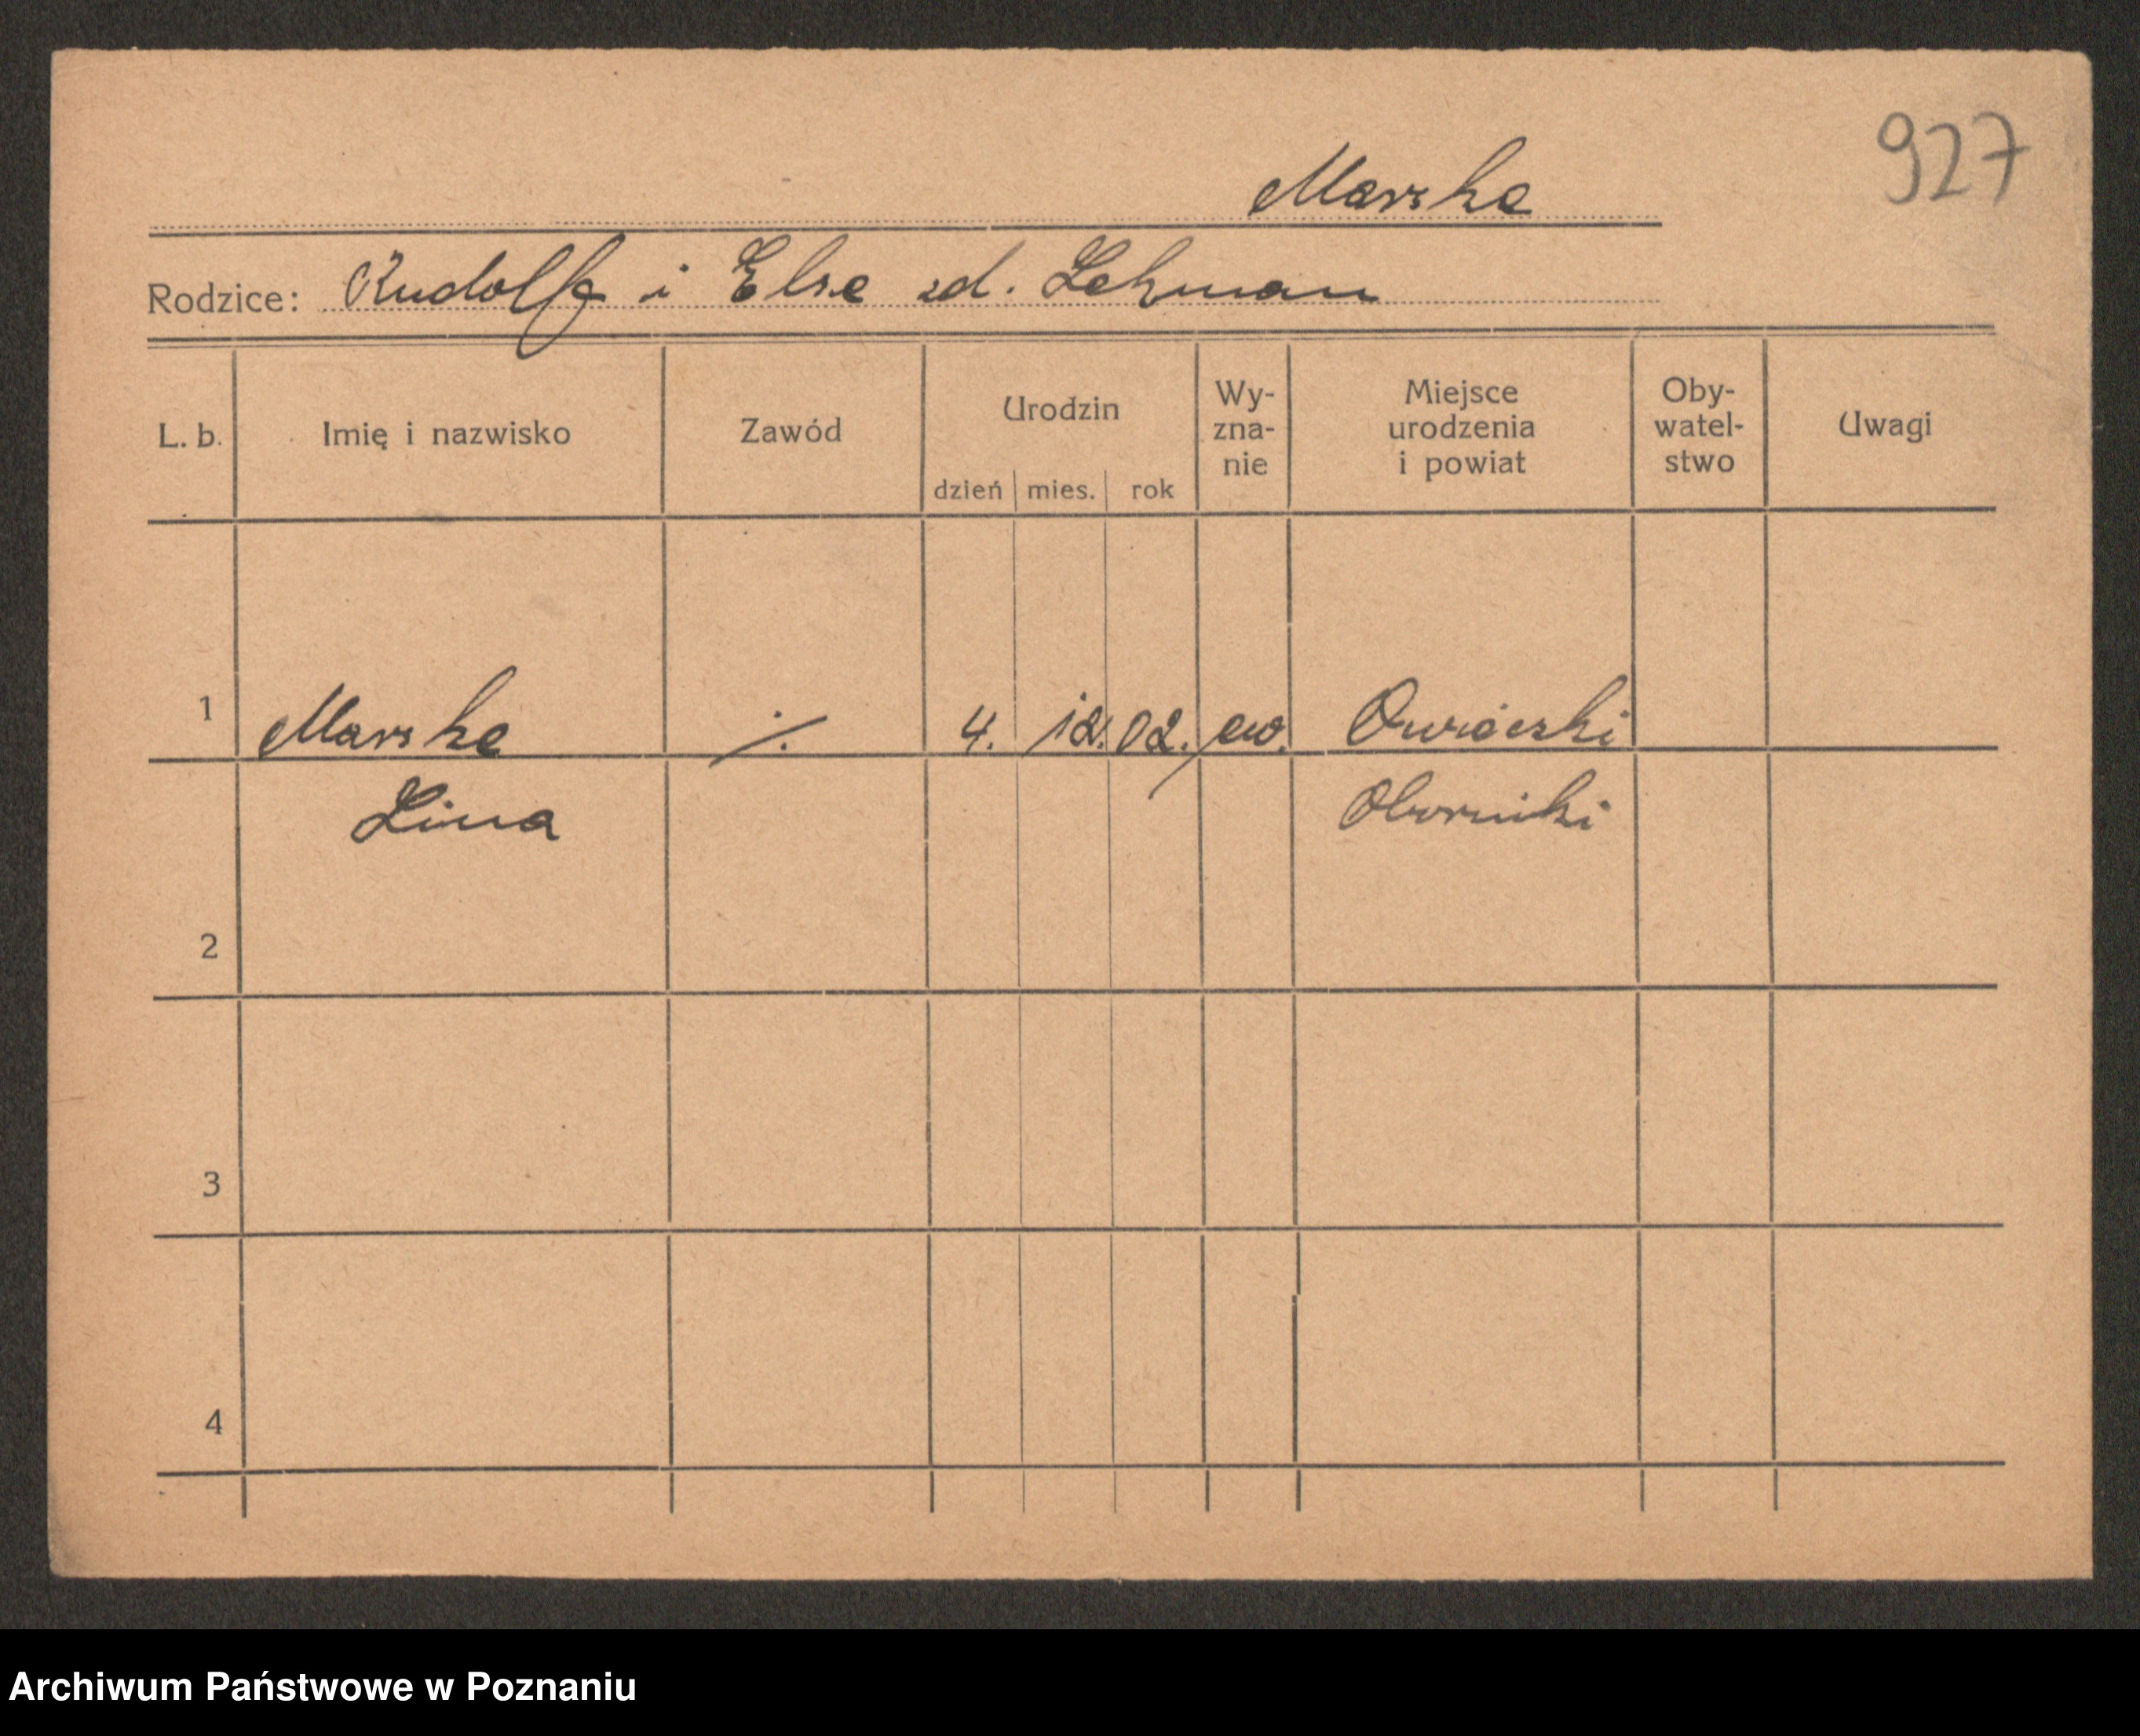 927
Marske
Rodzice: Rudolf i Else zd. Lehman
L. b. Imię i nazwisko Zawód Urodzin dzień mies. rok Wy-zna-nie Miejsce urodzenia i powiat Oby-watel-stwo Uwagi
1 Marske ./. 4. 12. 02. ew. Owieczki
Lina Oborniki
2
3
4
Archiwum Państwowe w Poznaniu